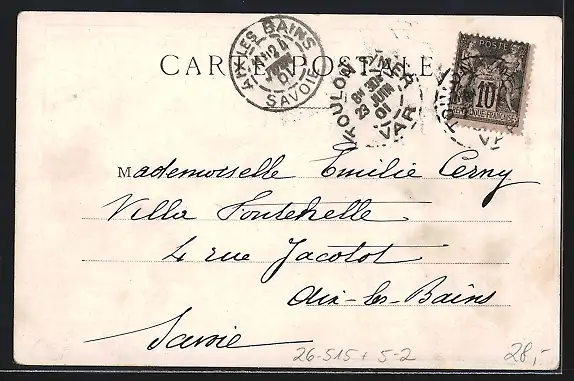 CARTE POSTALE
AIX-LES-BAINS
SAVOIE
TOULON
8H 30
23 JUIN
01
VAR
POSTE
10
Mademoiselle Emilie Cerny
Villa Fontenelle
4 rue Jacotot
Aix-les-Bains
Savoie
26-515 + 5-2
28,-